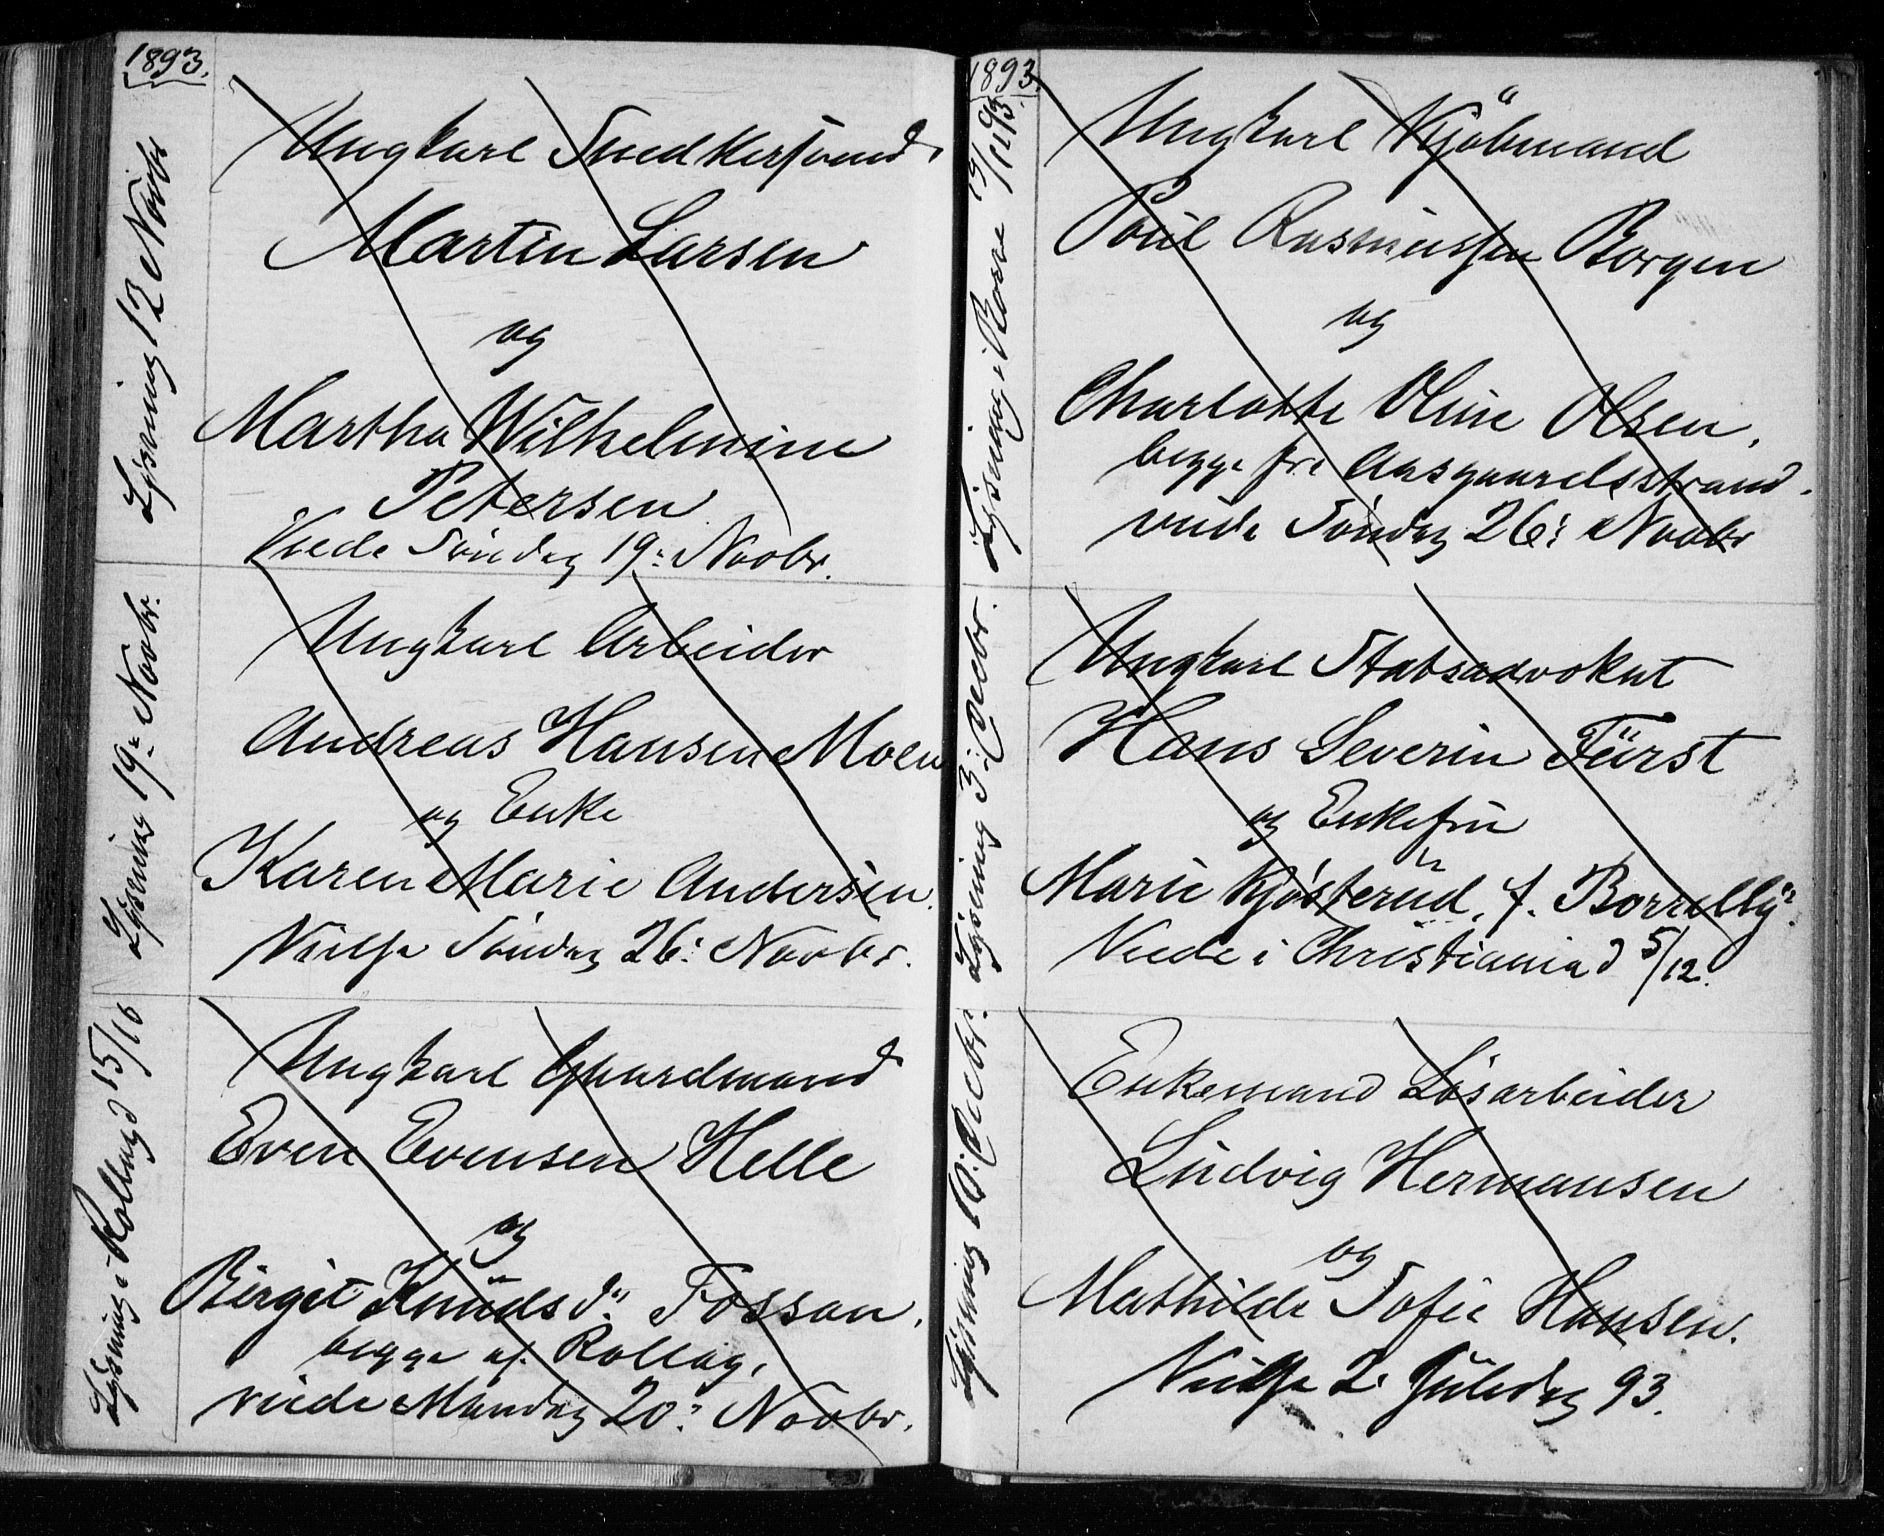 1893.
Lysning 12 Novbr
Ungkarl Snedkersvend
Martin Larsen
og
Martha Wilhelmine
Petersen
Viede Søndag 19: Novbr.
Lysning 19: Novbr.
Ungkarl Arbeider
Andreas Hansen Moen
og Enke
Karen Marie Andersen.
Vielse Søndag 26: Novbr.
Lysning i Rollag d 15/16
Ungkarl Gaardmand
Even Evensen Helle
og
Birgit Knudsd: Fossan,
begge af Rollag,
viede Mandag 20: Novbr.
1893.
Lysning i Borre
Ungkarl Kjöbmand
Poul Rasmussen Borgen
og
Charlotte Oline Olsen,
begge fra Aasgaardsstrand.
viede Søndag 26: Novbr
Lysning 3: Decbr.
Ungkarl Statsadvokat
Hans Severin Fürst
og Enkefru
Marie Kjøsterud, f.
Viede i Christiania d 5/12.
Lysning 10: Decbr.
Enkemand Løsarbeider
Ludvig Hermansen
og
Mathilde Sofie Hansen.
Vielse 2. Juledag 93.